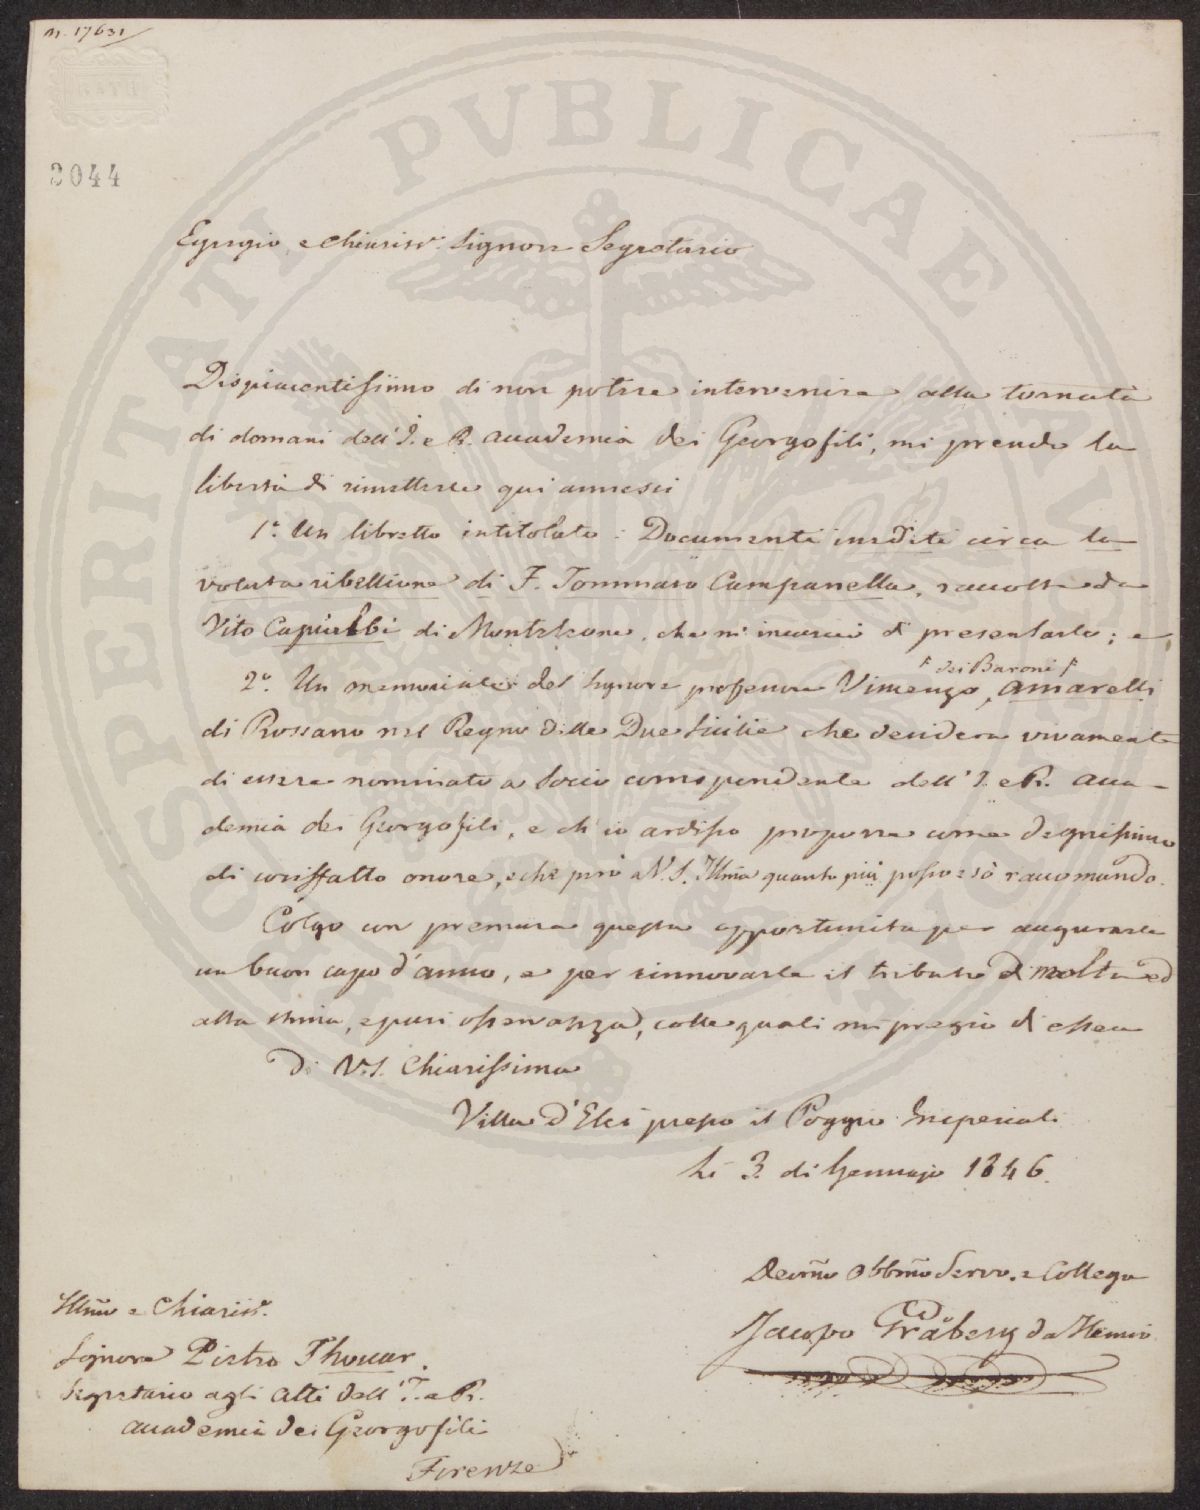 N. 17631
2044
PROSPERITATI PVBLICAE AVGENDAE
Egregio e Chiariss.º Signore Segretario
Dispiacentissimo di non potere intervenire alla tornata
di domani dell' I. e R. Accademia dei Georgofili, mi prendo la
libertà di rimettere qui annessi
1.º Un libretto intitolato: Documenti inediti circa la
voluta ribellione di F. Tommaso Campanella, raccolti da
Vito Capialbi di Monteleone, che mi incaricò di presentarlo; e
2.º Un memoriale del Signore professore Vincenzo, Amarelli
dei Baroni
di Rossano nel Regno delle Due Sicilie che desidera vivamente
di essere nominato a Socio corrispondente dell' I. e R. Acca-
demia dei Georgofili, e ch' io ardisco proporre come degnissimo
di cosiffatto onore, e che però a V. S. Illma quanto più posso e sò raccomando.
Colgo con premura questa opportunità per augurarle
un buon capo d'anno, e per rinnovarle il tributo di molta ed
alta stima, e pari osservanza, colle quali mi pregio di essere
Di V. S. Chiarissima
Villa d'Elci presso il Poggio Imperiale
Li 3. di Gennajo 1846.
Devmo Obbmo Servo. e Collega
Jacopo Gråberg da Hemsö
Illmo e Chiariss.º
Signore Pietro Thouar.
Segretario agli Atti dell' I. e R.
Accademia dei Georgofili
Firenze